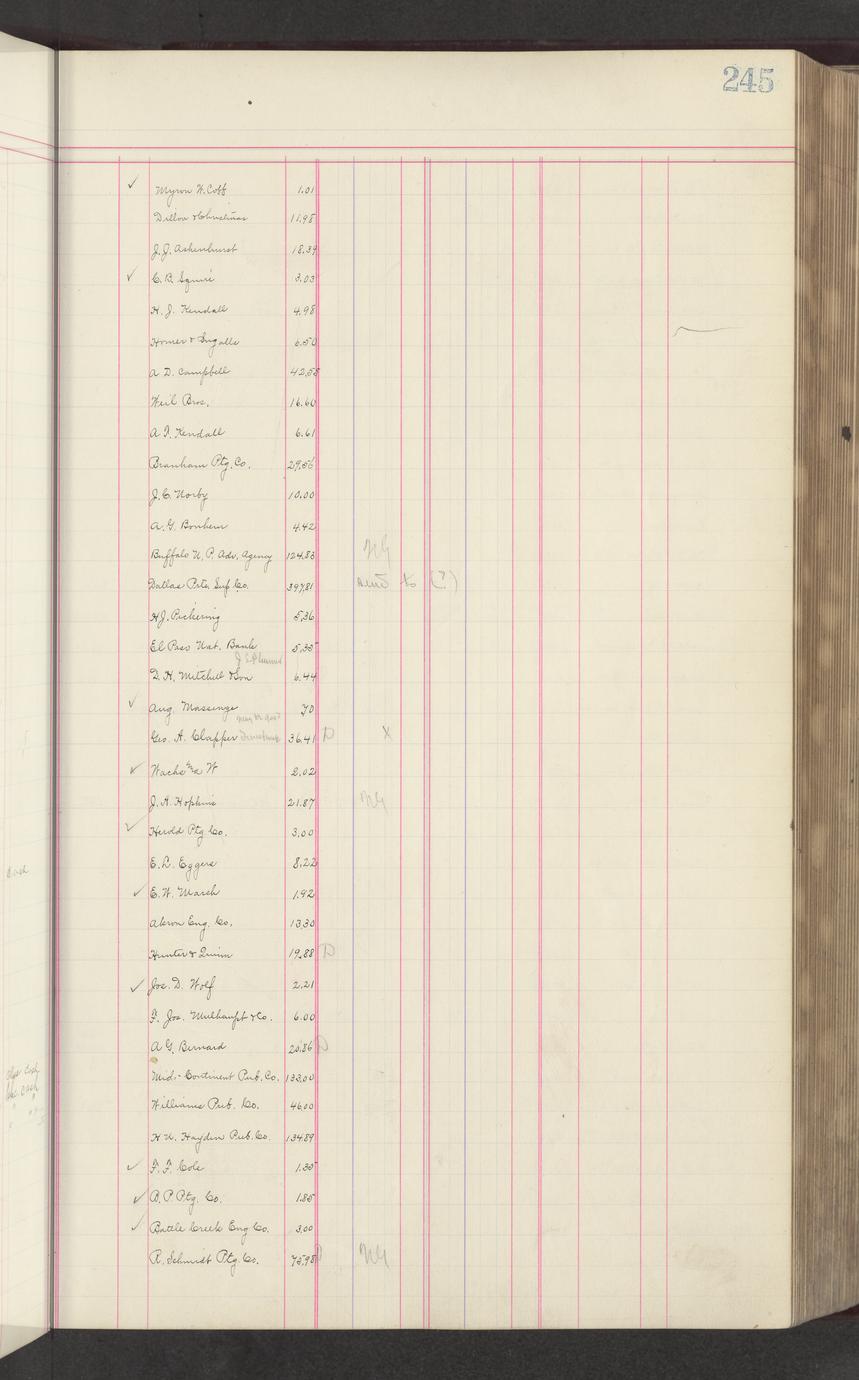 245
✓ Myron W. Cobb 1.01
Dillon & Christinas 11.98
J. J. Ashenhurst 18.39
✓ C. B. Squire 3.03
H. J. Kendall 4.98
Horner & Ingalls 6.50
A. D. Campbell 42.58
Weil Bros. 16.60
A. I. Kendall 6.61
Branham Ptg. Co. 29.56
J. C. Norby 10.00
A. G. Bonhem 4.42
Buffalo N. P. Adv. Agency 124.83 NG
Dallas Prtrs Sup Co. 397.81 send to (?)
H. J. Pickering 5.36
El Paso Nat. Bank 5.35
D. H. Mitchell & Son 6.44
✓ Aug. Massinge 70
Geo. A. Clapper 36.41 D X
✓ Wachs 2.02
J. A. Hopkins 21.87 NG
✓ Herold Ptg Co. 3.00
E. L. Eggers 8.22
✓ E. W. Marsh 1.92
Akron Eng. Co. 13.30
Hunter & Quinn 19.88 D
✓ Jos. D. Wolf 2.21
F. Jos. Mulhaupt & Co. 6.00
A G. Bernard 20.86 D
Mid-Continent Pub. Co. 133.00
Williams Pub. Co. 46.00
H. N. Hayden Pub. Co. 134.89
✓ F. F. Cole 1.35
✓ B. P. Ptg. Co. 1.85
✓ Battle Creek Eng. Co. 3.00
R. Schmidt Ptg. Co. 75.98 D NG